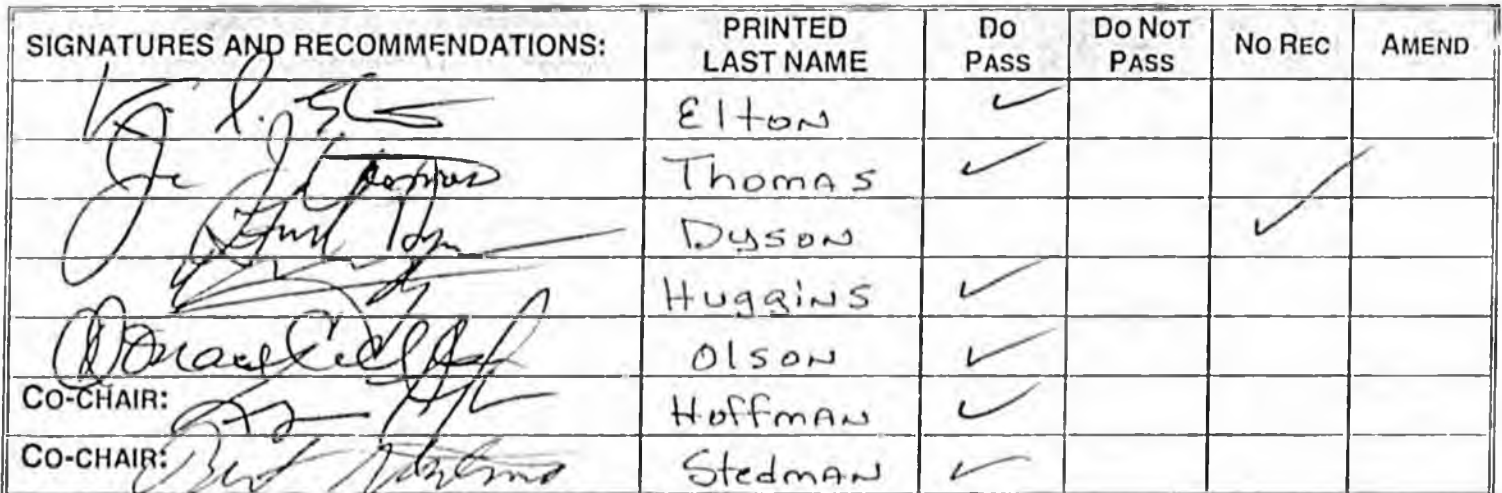 SIGNATURES AND RECOMMENDATIONS: PRINTED LAST NAME DO PASS DO NOT PASS NO REC AMEND
Elton ✓
Thomas ✓
Dyson ✓
Huggins ✓
Donald Olson Olson ✓
CO-CHAIR: Hoffman ✓
CO-CHAIR: Bert Stedman Stedman ✓